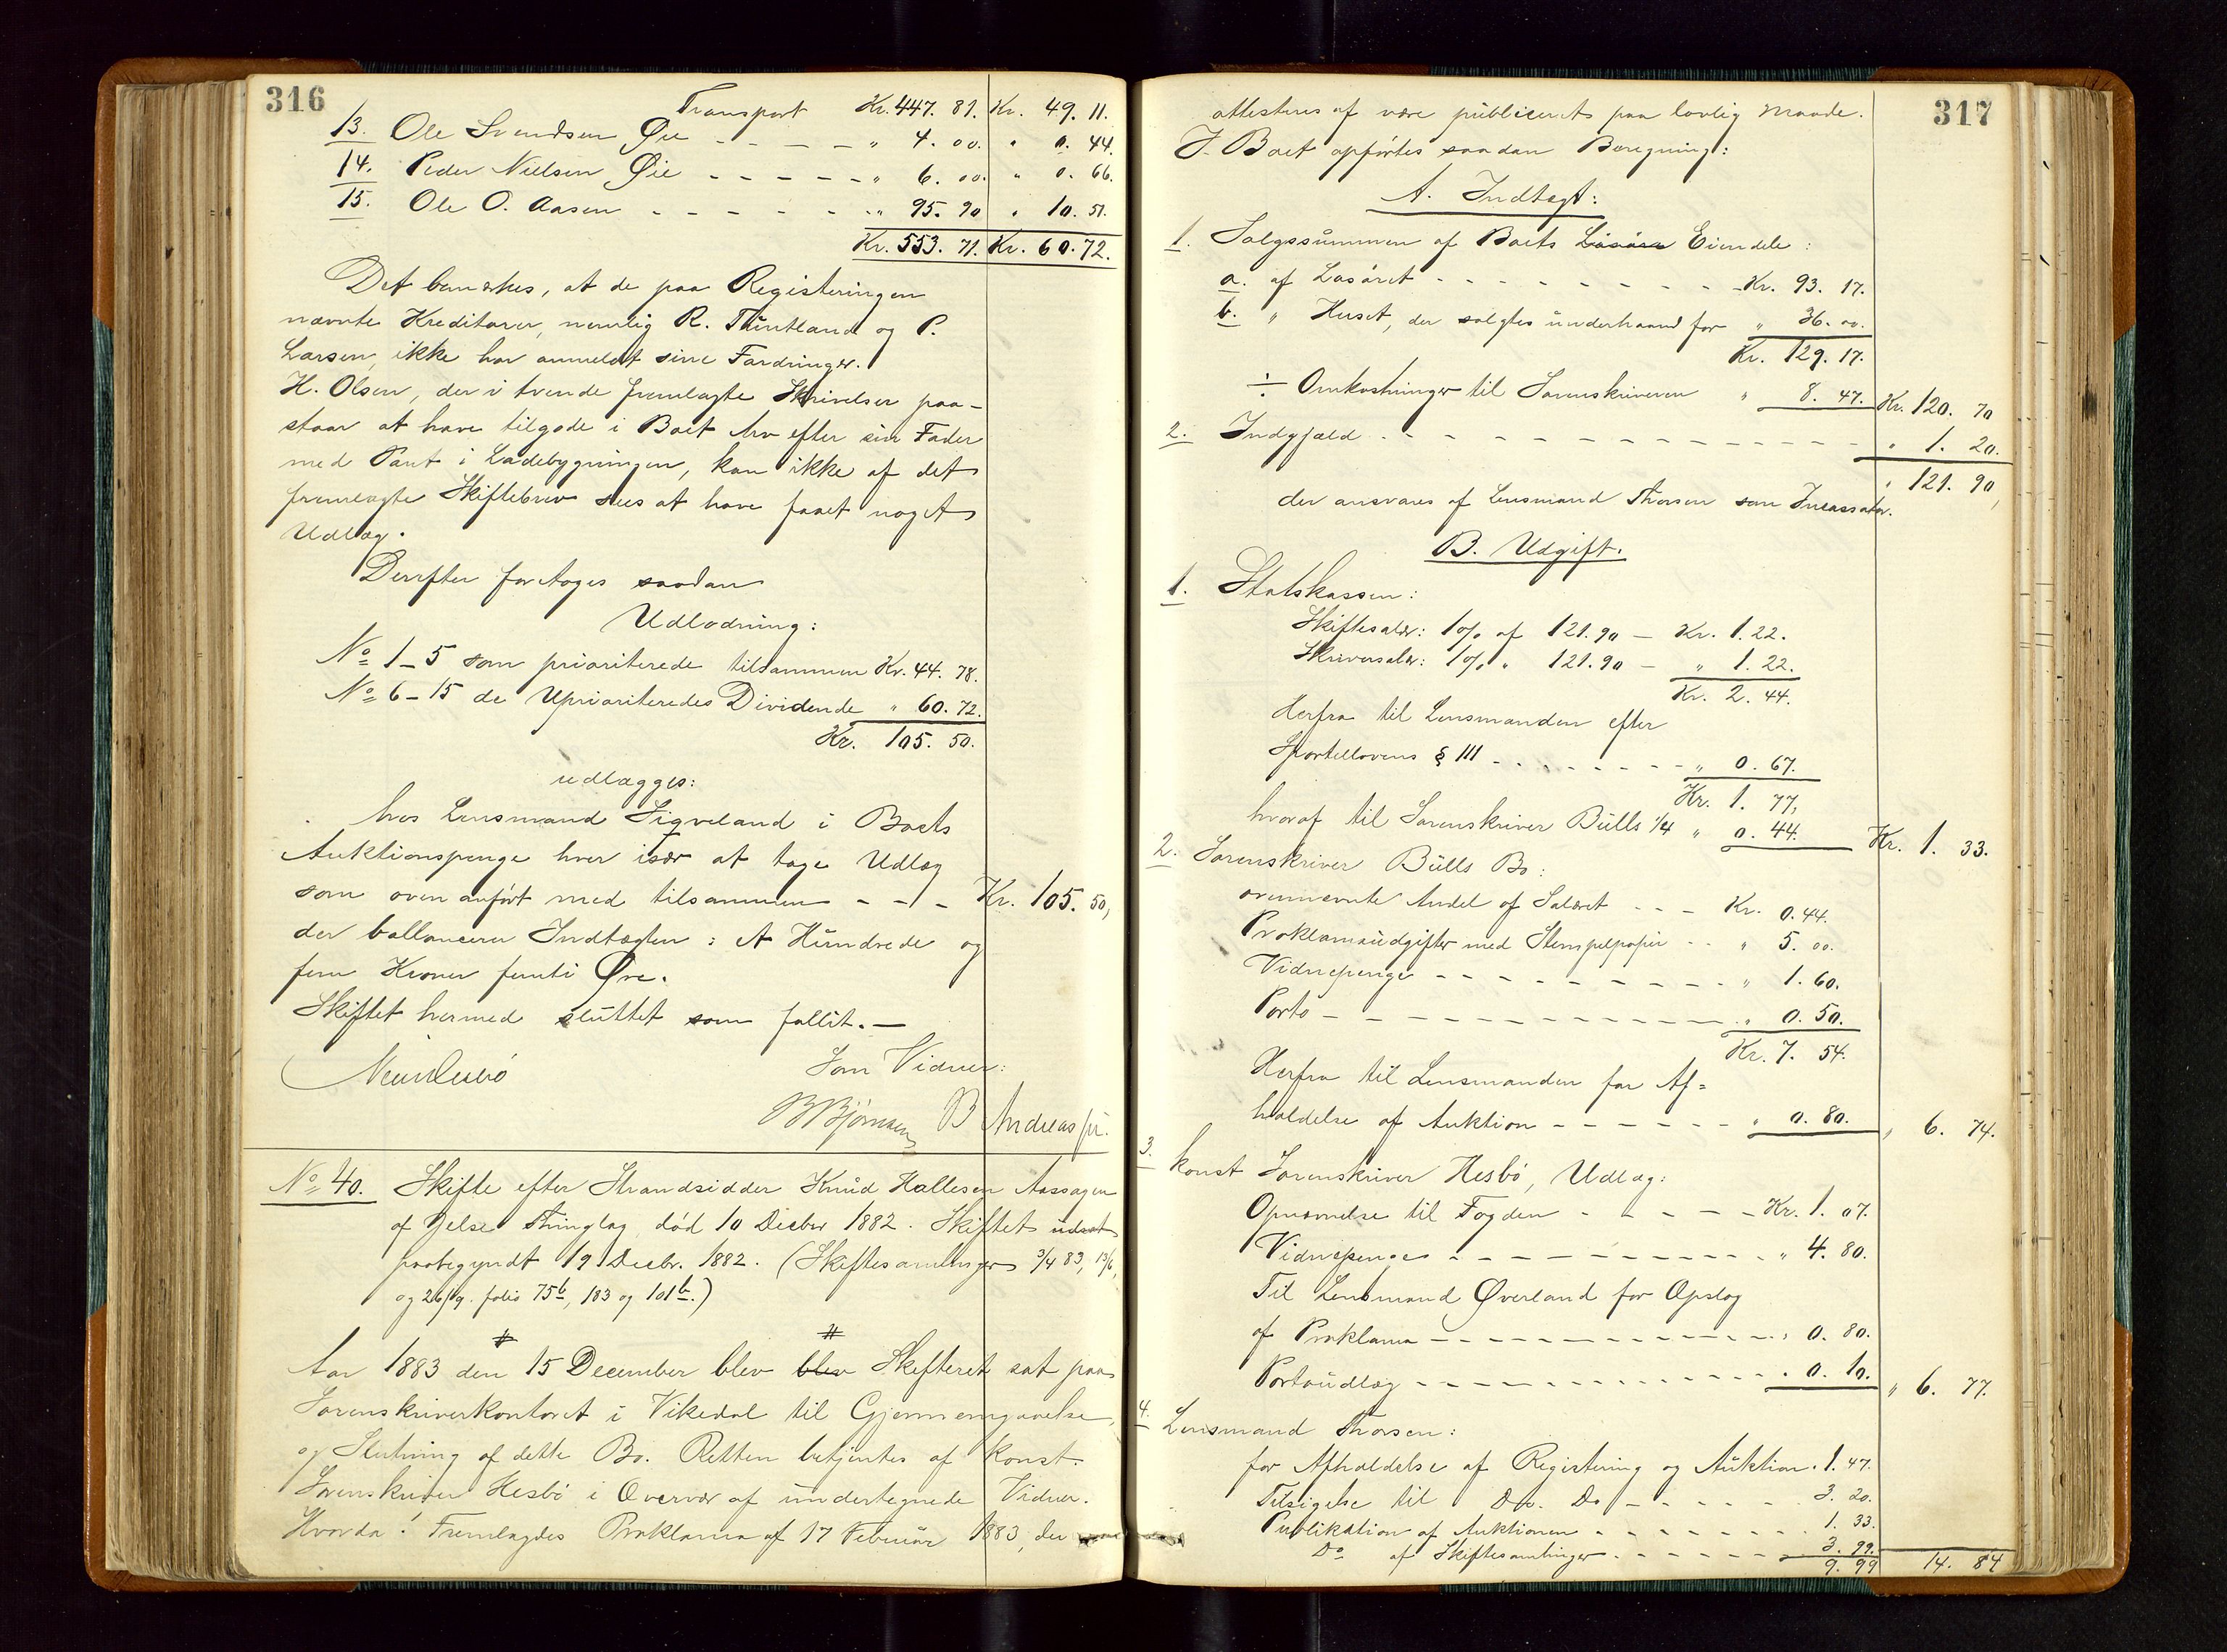 316
Transport Kr. 447. 81. Kr. 49. 11.
13. Ole Svendsen Øie - - - - " 4. 00. " 0. 44.
14. Peder Nielsen Øie - - - - - " 6. 00. " 0. 66.
15. Ole O. Aasen - - - - - " 95. 90 " 10. 51.
Kr. 553. 71. Kr. 60. 72.
Det bemærkes, at de paa Registeringen
nævnte Kreditorer, nemlig R. Tuntland og P.
Larsen, ikke har anmeldt sine Fordringer.
H. Olsen, der i tvende fremlagte Skrivelser paa-
staar at have tilgode i Boet Arv efter sin Fader
med Pant i Ladebygningen, kan ikke af det
fremlagte Skiftebrev sees at have faaet noget
Udlæg.
Derefter foretoges saadan
Udlodning:
No 1-5 som prioriterede tilsammen Kr. 44. 78.
No 6-15 de Uprioriteredes Dividende " 60. 72.
Kr. 105. 50.
udlægges:
hos Lensmand Sigveland i Boets
Auktionspenge hver især at tage Udlæg
som oven anført med tilsammen - - - Kr. 105. 50,
der ballancerer Indtægten: Et Hundrede og
fem Kroner femti Øre.
Skiftet hermed sluttet som fallit. —
Som Vidner:
B Bjørnsen B Andreas
No 40. Skifte efter Strandsidder Knud Hallesen Aasagen
af Jelse Thinglag, død 10 Decbr 1882. Skiftet udsat
paabegyndt 19 Decbr. 1882. (Skiftesamlinger 3/4 83, 13/6,
og 26/9. folio 75b, 183 og 101b.)
Aar 1883 den 15 December blev blev Skifteret sat paa
Sorenskriverkontoret i Vikedal til Gjennemgaaelse
og Slutning af dette Bo. Retten betjentes af konst.
Sorenskriver Hesbö i Overvær af undertegnede Vidner.
Hvorda: Fremlagdes Proklama af 17 Februar 1883, der
317
attesteres af være publiceret paa lovlig Maade.
I Boet opførtes saadan Beregning:
A. Indtægt:
1. Salgssummen af Boets Løsøre Eiendele:
a. af Løsøret - - - - - - - - Kr. 93. 17.
b. " Huset, der solgtes underhaand for " 36. 00.
Kr. 129. 17.
÷ Omkostninger til Sorenskriveren " 8. 47. Kr. 120. 70
2. Indgjæld - - - - - - - - - - - - - " 1. 20.
" 121. 90,
der ansvares af Lensmand Thorsen som Incassator.
B. Udgift.
1. Statskassen:
Skiftesalær: 1% af 121.90 — Kr. 1.22.
Skriversalær: 1% " 121.90 — " 1.22.
Kr. 2. 44.
Herfra til Lensmanden efter
Sportellovens § 111 - - - - - - - " 0. 67.
Kr. 1. 77,
hvoraf til Sorenskriver Bülls 1/4 " 0. 44. Kr. 1. 33.
2. Sorenskriver Bülls Bo:
ovennævnte Andel af Salæret - - - Kr. 0.44.
Proklamaudgifter med Stempelpapir - - " 5. 00.
Vidnepenge - - - - - - - - - " 1. 60.
Porto - - - - - - - - - - - " 0. 50.
Kr. 7. 54.
Herfra til Lensmanden for Af=
holdelse af Auktion - - - - - - " 0. 80. " 6. 74.
3. konst Sorenskriver Hesbö, Udlæg:
Opnævnelse til Fogden - - - - - Kr. 1. 07.
Vidnepenge - - - - - - - - - - " 4. 80.
Til Lensmand Øverland for Opslag
af Proklama - - - - - - - - - - " 0. 80.
Portoudlæg - - - - - - - - - - " 0. 10. " 6. 77.
4. Lensmand Thorsen:
for Afholdelse af Registering og Auktion. 1. 47.
Tilsigelse til Do. Do - - - - - 3. 20.
Publikation af Auktionen - - - - - - 1. 33.
Do af Skiftesamlinger - - - - - - 3. 99.
9. 99 14. 84